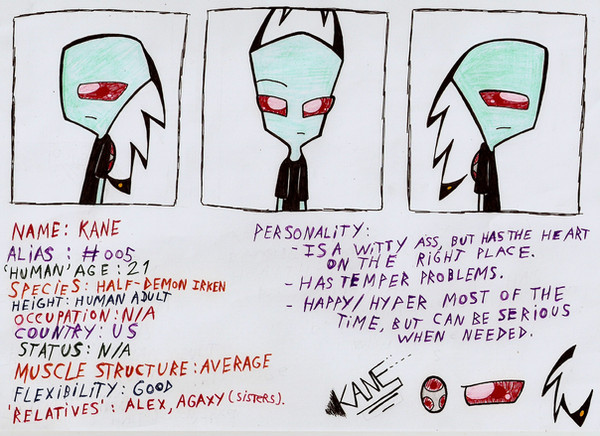 NAME: KANE
ALIAS: #005
'HUMAN' AGE: 21
SPECIES: HALF-DEMON IRKEN
HEIGHT: HUMAN ADULT
OCCUPATION: N/A
COUNTRY: US
STATUS: N/A
MUSCLE STRUCTURE: AVERAGE
FLEXIBILITY: GOOD
'RELATIVES': ALEX, AGAXY (SISTERS).
PERSONALITY:
- IS A WITTY ASS, BUT HAS THE HEART
ON THE RIGHT PLACE.
- HAS TEMPER PROBLEMS.
- HAPPY/HYPER MOST OF THE
TIME, BUT CAN BE SERIOUS
WHEN NEEDED.
KANE